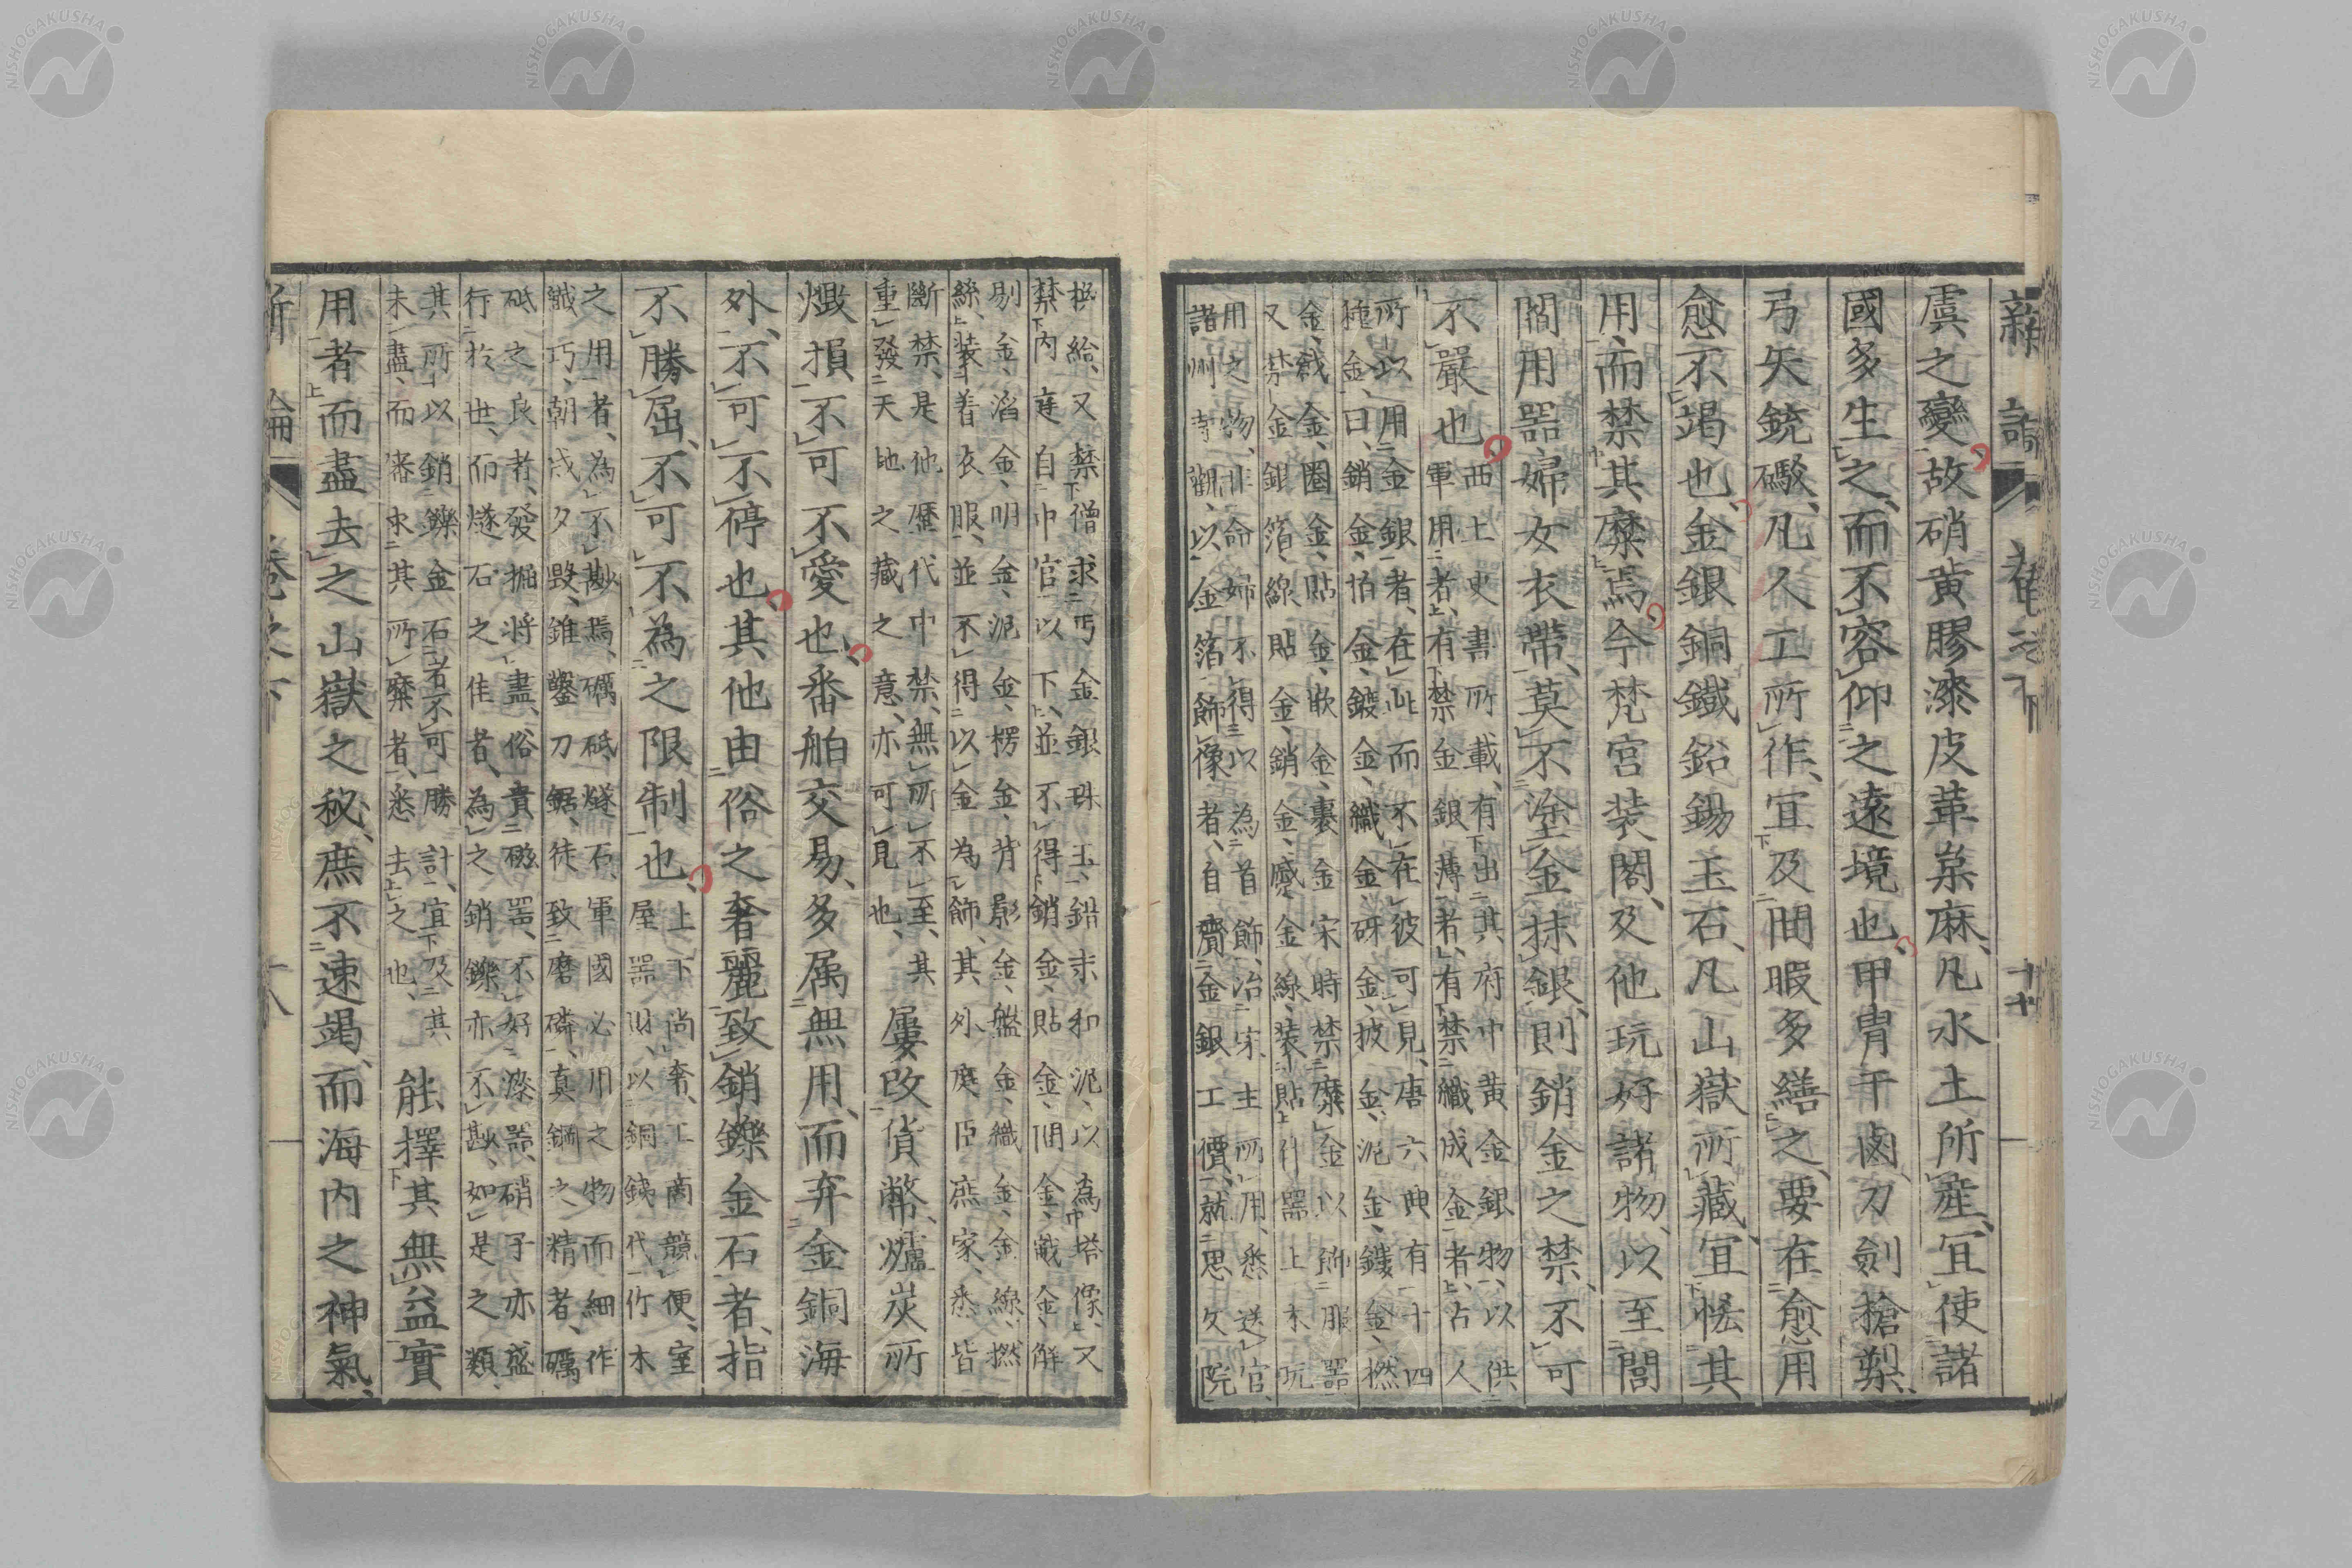 新論 卷之下
虞之變、故硝黃膠漆皮革枲麻、凡水土所產、宜使諸
國多生之、而不容仰之遠境也、甲冑干鹵、刀劍槍槊、
弓矢銃礮、凡人工所作、宜及間暇多繕之、要在愈用
愈不竭也、金銀銅鐵鉛錫玉石、凡山嶽所藏、宜惜其
用、而禁其糜焉、今梵宮装閣、及他玩好諸物、以至閭
閻用器婦女衣帶、莫不塗金抹銀、則銷金之禁、不可
不嚴也、
西土史書所載、有出其府中黃金銀物、以供
軍用者、有禁金銀薄者、有禁織成金者、古人
所以用金銀者、在此而不在彼可見、唐六典有十四
種金、曰、銷金、拍金、鍍金、織金、砑金、披金、泥金、鏤金、撚
金、戧金、圈金、貼金、嵌金、裹金、宋時禁糜金以飾服器、
又禁金銀箔、線、貼金、銷金、蹙金線、装貼什器土木玩
用之物、非命婦不得以為首飾、冶宋主所用、悉送官、
諸州寺觀、以金箔飾像者、自齎金銀工價、就思文院
換給、又禁僧求丐金銀珠玉、錯末和泥、以為塔像、又
禁內庭自中官以下、並不得銷金、貼金、間金、戧金、解
剔金、滔金、明金、泥金、楞金、背影金、艦金、織金、金線、撚
絲、装著衣服、並不得以金為飾、其外庭臣庶家、悉皆
斷禁、是他歷代中禁、無所不至、其
重發天地之藏之意、亦可見也、
屢改貨幣、爐炭所
燬損、不可不愛也、番舶交易、多属無用、而弃金銅海
外、不可不停也、其他由俗之奢麗、致銷鑠金石者、指
不勝屈、不可不為之限制也、
上下尚奢、工商競便、室
屋器財、以銅鐵代竹木
之用者、為不尠焉、礪砥燧石、軍國必用之物、而細作
鐵巧、朝成夕毀、錐鑿刀鋸、徒致磨磷、真鋼之精者、礪
砥之良者、發掘將盡、俗貴磁器、不好漆器、硝子亦盛
行於世、而燧石之佳者、為之銷鑠亦不尠、如是之類、
其所以銷鑠金石者不可勝計、宜及其
未盡、而審求其所糜者、悉去之也、
能擇其無益實
用者而盡去之、山嶽之秘、庶不速竭、而海內之神氣、
新論 卷之下 十八